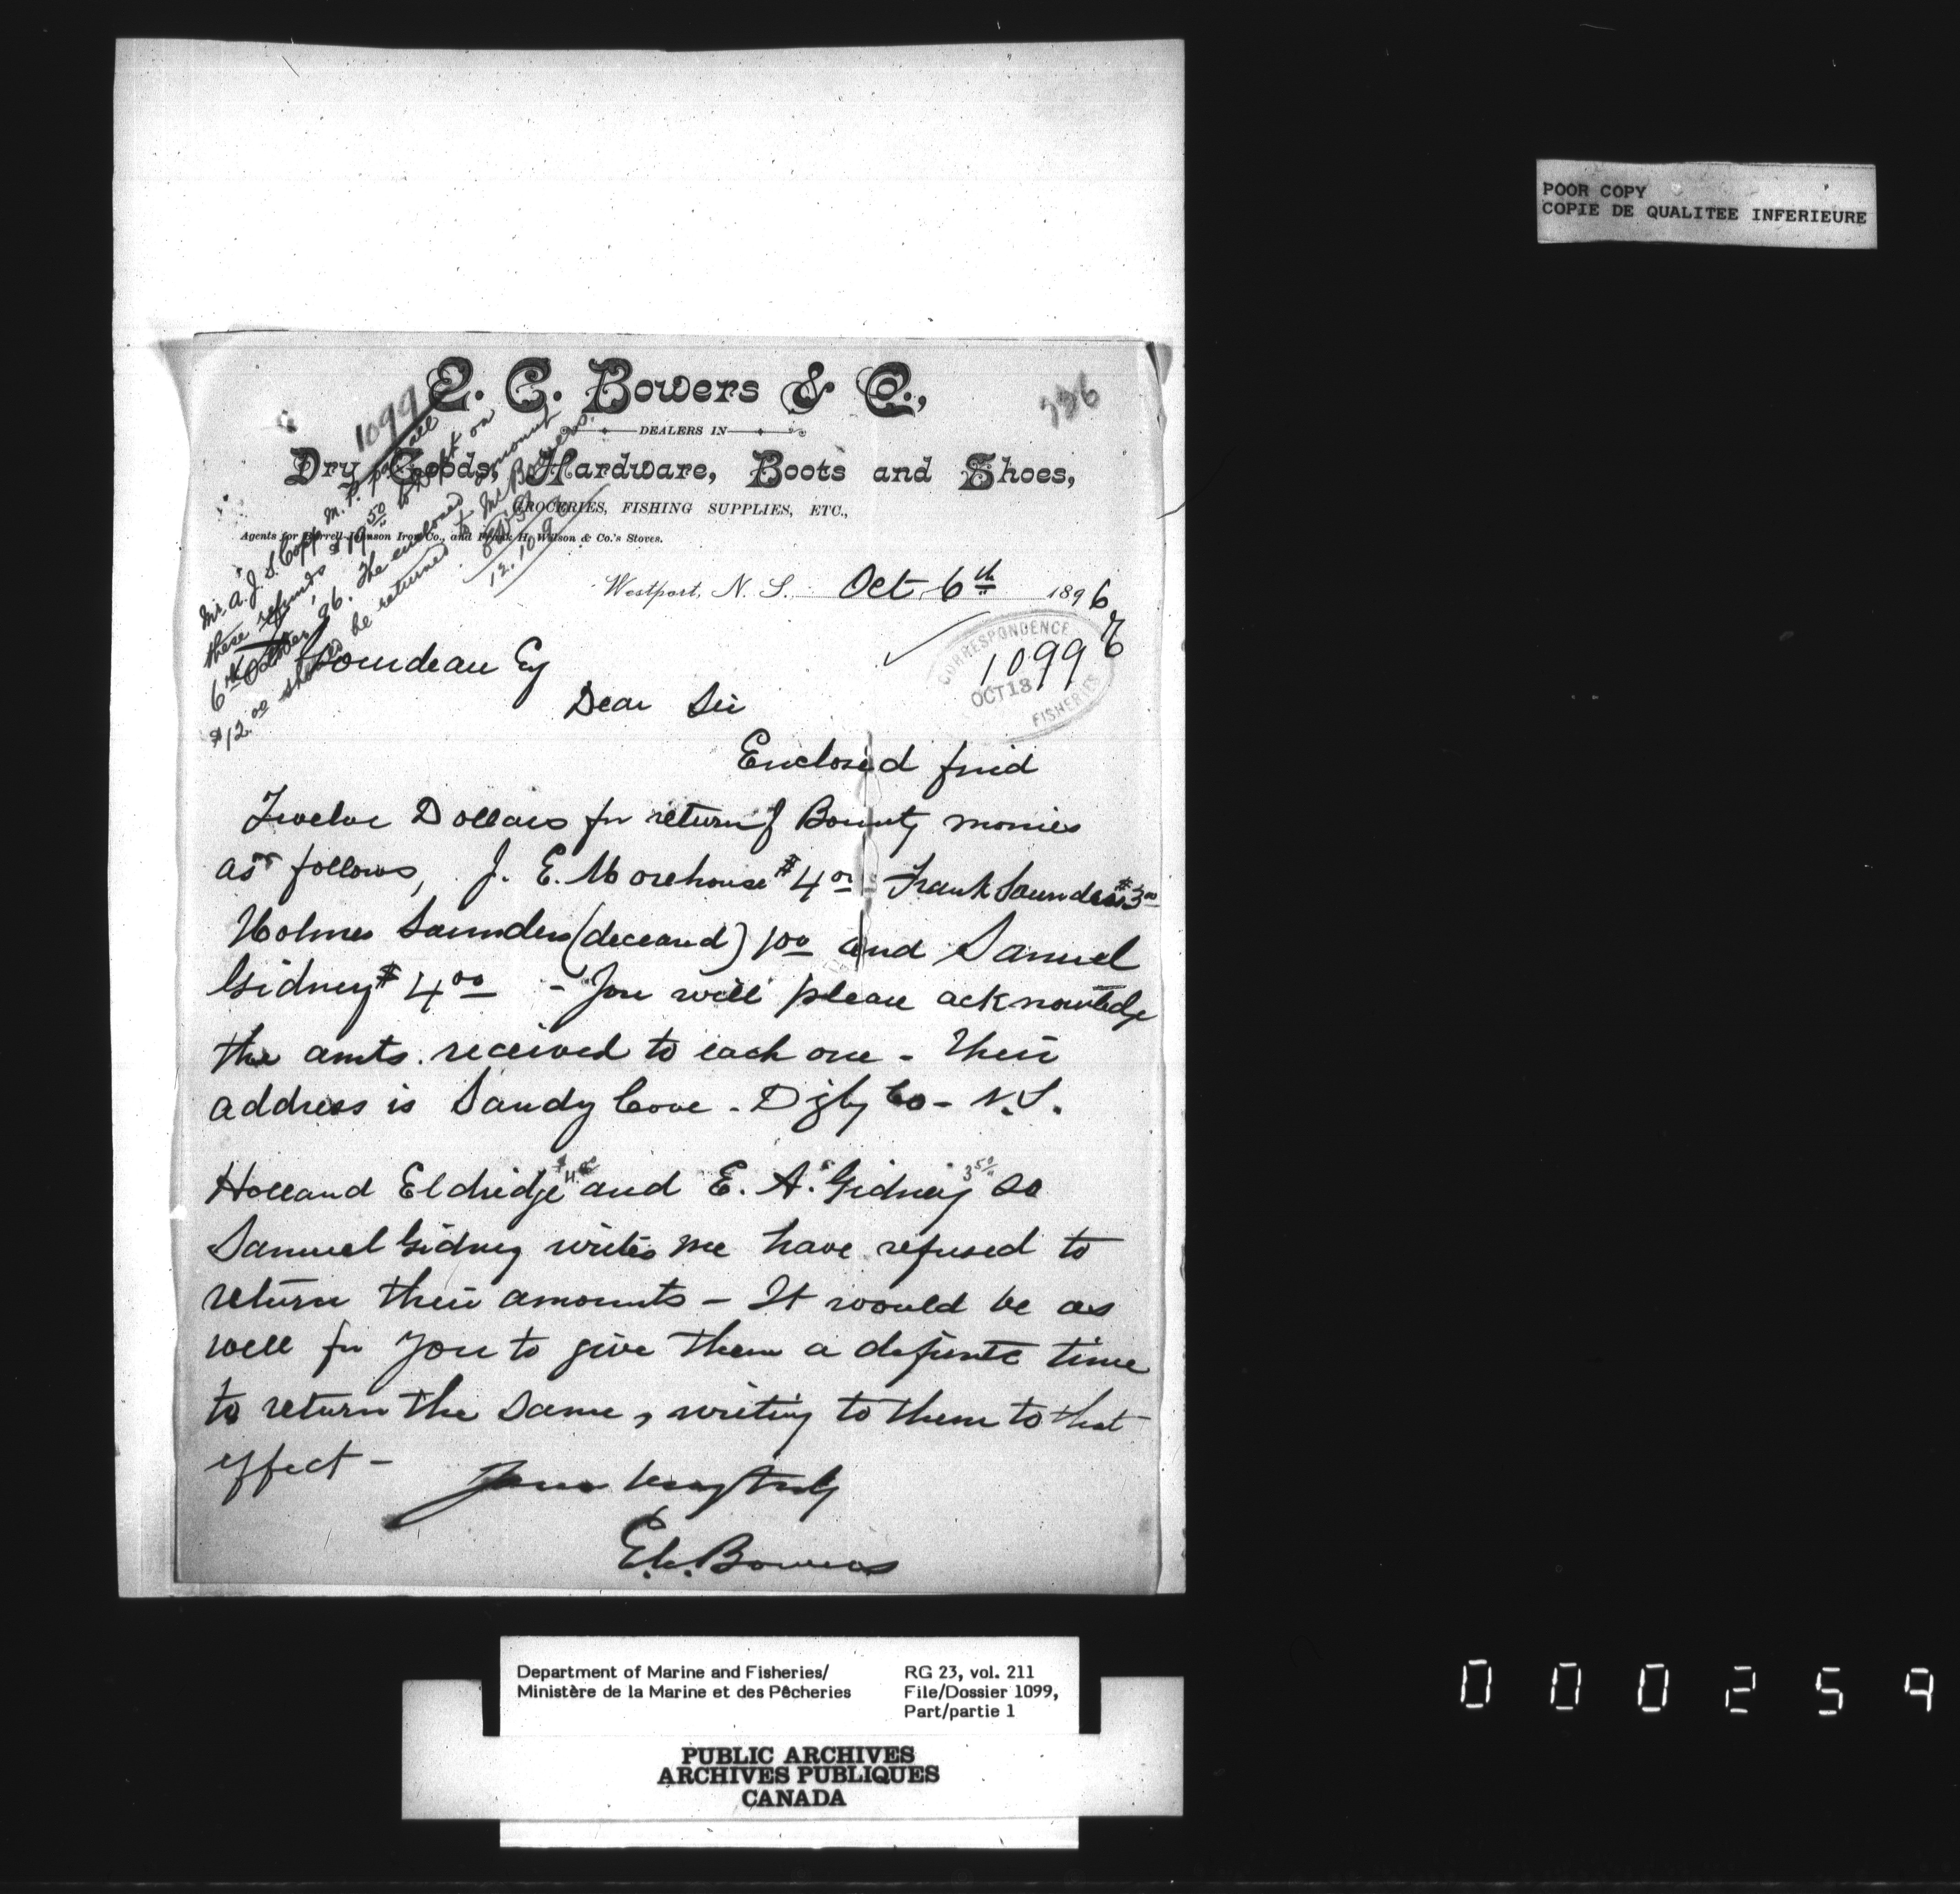 POOR COPY
COPIE DE QUALITEE INFERIEURE
E. C. Bowers & Co.,
1099
336
DEALERS IN
Dry Goods, Hardware, Boots and Shoes,
GROCERIES, FISHING SUPPLIES, ETC.,
Agents for Burrell-Johnson Iron Co., and Frank H. Wilson & Co.'s Stoves.
Mr. A. J. S. Copp M. P. paid all
these refunds $19.50 to Dept on
6th October 96. The enclosed amount
$12.00 should be returned to Mr Bowers.
12.10.96
Westport, N. S., Oct 6th 1896
CORRESPONDENCE
1099
OCT 13
FISHERIES
Gourdeau Esq
Dear Sir
Enclosed find
Twelve Dollars for return of Bounty monies
as follows, J. E. Morehouse $4 00 Frank Saunders $3 00
Holmes Saunders (deceased) 1 00 and Samuel
Gidney $4 00 - You will please acknowledge
the amts. received to each one - Their
address is Sandy Cove - Digby Co - N.S.
Holland Eldridge $4.00 and E. A. Gidney 3 50 so
Samuel Gidney writes me have refused to
return their amounts - It would be as
well for you to give them a definite time
to return the same, writing to them to that
effect -
Yours Very truly
E.C. Bowers
Department of Marine and Fisheries/
Ministère de la Marine et des Pêcheries
RG 23, vol. 211
File/Dossier 1099,
Part/partie 1
PUBLIC ARCHIVES
ARCHIVES PUBLIQUES
CANADA
000259